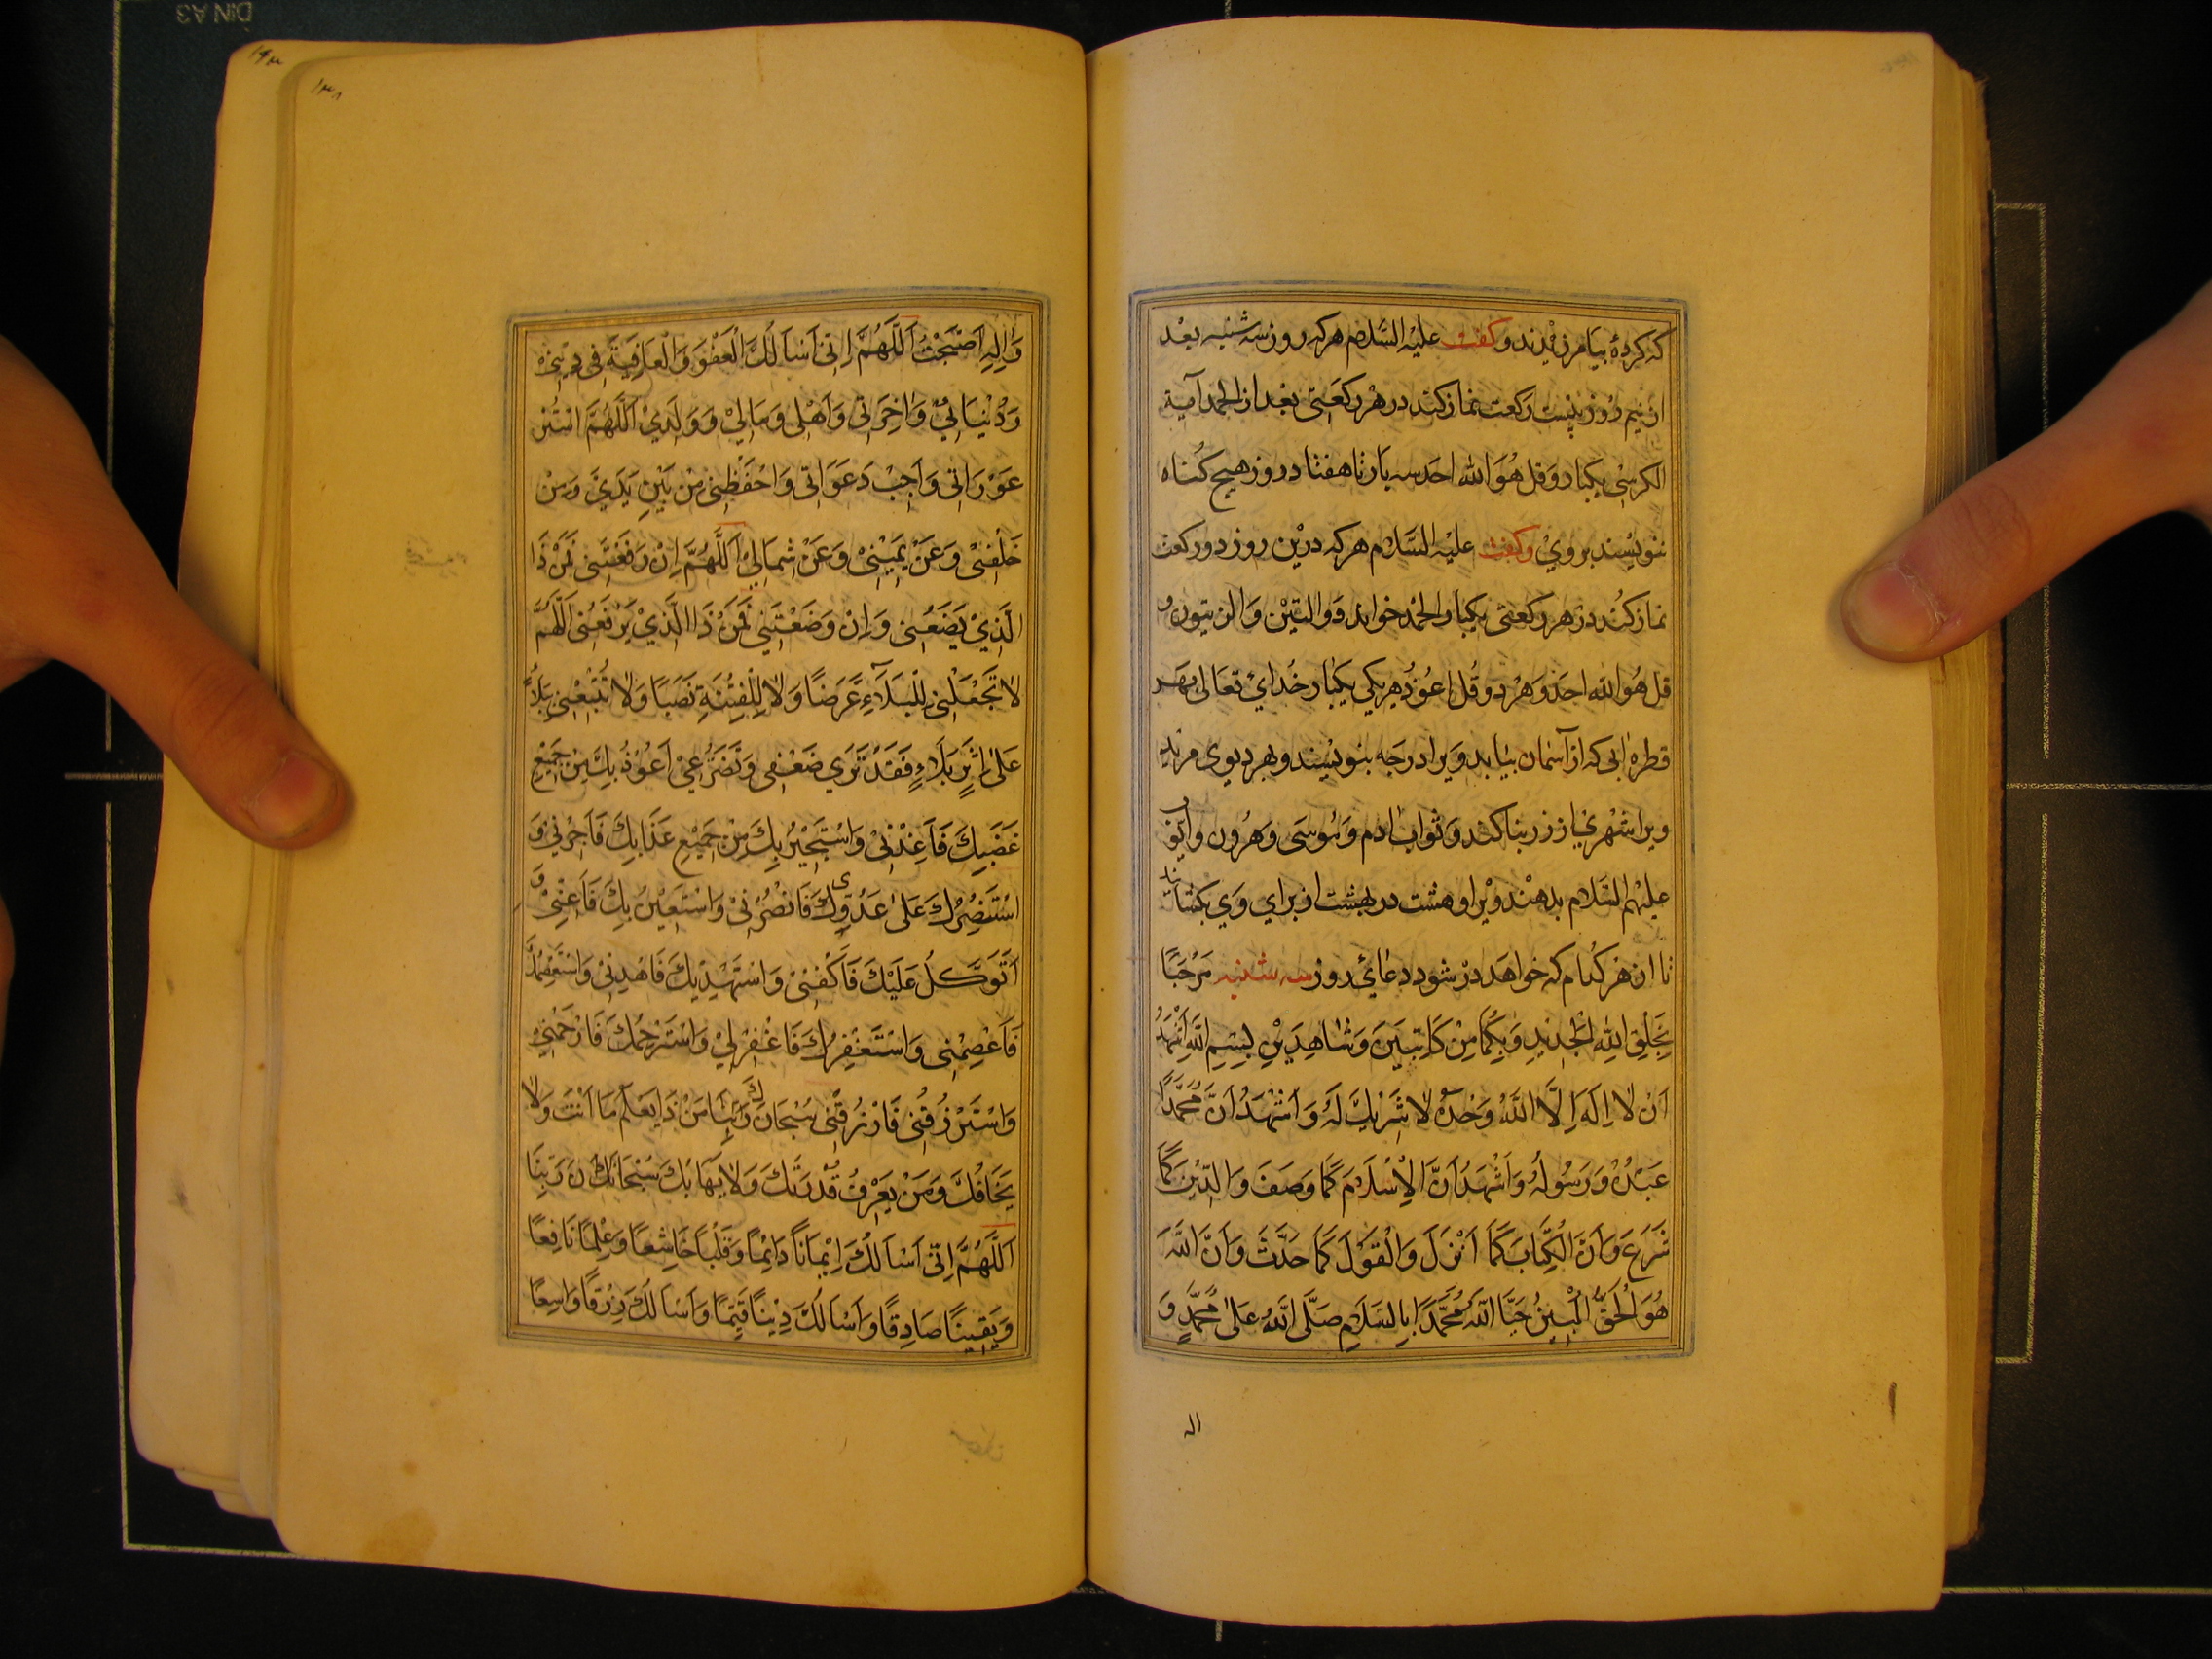 که کردهٔ بیامرزیدند و کفت علیه السلام هرکه روز سه شنبه بعد
از نیم روز بیست رکعت نماز کند در هر رکعتی بعد از الحمد آیة
الکرسی یکبار و قل هو الله احد سه بار تا هفتا د روز هیچ کناه
ننویسند بروی و کفت علیه السلام هرکه درین روز دو رکعت
نماز کند در هر رکعتی یکبار الحمد خواند و والتین والزیتون و
قل هو الله احد و هر دو قل اعوذ هر یکی یکبار خدای تعالی بهر
قطره ابی که از آسمان بیابد ویرا درجه بنویسند و بهر دیوی مرند
ویرا شهری از زر بنا کنند و ثواب ادم و موسی و هرون و ایوب
علیهم السلام بدهند ویرا و هشت در بهشت از برای وی بکشایند
تا از هر کدام که خواهد در شود دعای روز سه شنبه مرحبا
بخلق الله الجدید وبکما من کاتبین وشاهدین بسم الله اشهد
ان لا اله الا الله وحده لا شریك له واشهد ان محمدا
عبده ورسوله واشهد ان الاسلام کما وصف والدین کما
شرع وان الکتاب کما انزل والقول کما حدث وان الله
هو الحق المبین حیا الله محمدا بالسلام صلی الله علی محمد و
اله
۱۳۸
۱۴۳
واله اصبحت اللهم انی اسالك العفو والعافیة فی دینی
ودنیائی واخرتی واهلی ومالی وولدی اللهم استر
عوراتی واجب دعواتی واحفظنی من بین یدی ومن
خلفنی وعن یمینی وعن شمالی اللهم ان رفعتنی فمن ذا
الذی یضعنی وان وضعتنی فمن ذا الذی یرفعنی اللهم
لا تجعلنی للبلاء عرضا ولا للفتنة نصبا ولا تتبعنی بلاء
علی اثر بلاء فقد تری ضعفی وتضرعی اعوذ بك من جمیع
غضبك فاعذنی واستجیر بك من جمیع عذابك فاجرنی و
استنصرك علی عدوك فانصرنی واستعین بك فاعنی و
اتوکل علیك فاکفنی واستهدیك فاهدنی واستعصمك
فاعصمنی واستغفرك فاغفرلی واسترحمك فارحمنی
واسترزقنی فارزقنی سبحانك ربنا من ذا یعلم ما انت ولا
یخافك ومن یعرف قدرتك ولا یهابك سبحانك ربنا
اللهم انی اسالك ایمانا دائما وقلبا خاشعا وعلما نافعا
ویقینا صادقا واسالك دینا قیما واسالك رزقا واسعا
DIN A3